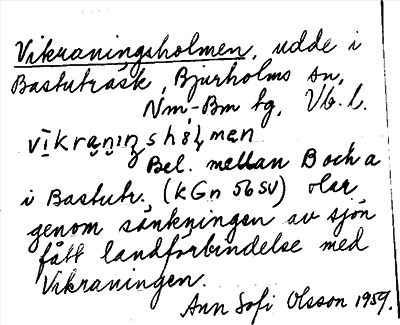 Vikraningsholmen, udde i
Bastuträsk, Bjurholms sn,
Nm-Bm tg, Vb. l.
vi̅kra̤ni̤ŋshɵlmen
Bel. mellan B och a
i Bastutr., (KGn 56 SV) Har
genom sänkningen av sjön
fått landförbindelse med
Vikraningen.
Ann Sofi Olsson 1959.